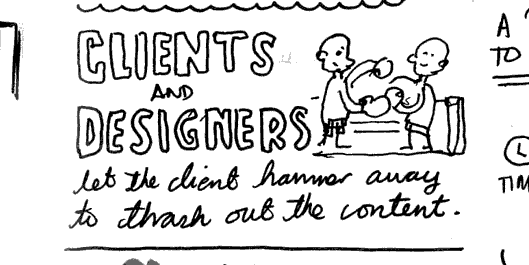 CLIENTS
AND
DESIGNERS
let the client hammer away
to thrash out the content.
A
TO
L
TIM